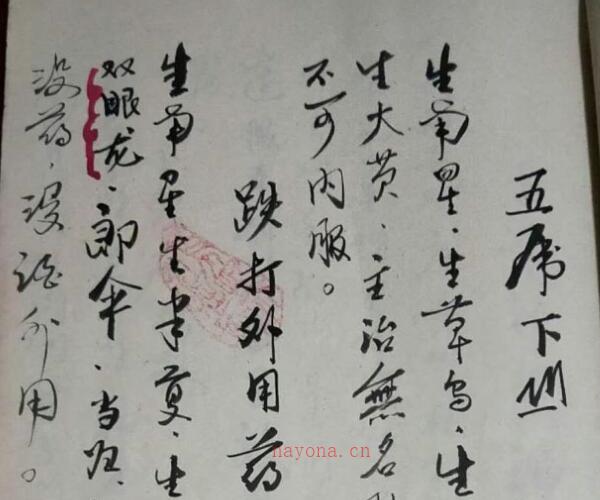 五虎下山
生南星、生草乌、生
生大黄、主治無名
不可内服。
跌打外用药
生南星生半夏、生
双眼龙、郎伞、当归、
没药、浸酒外用。
nayona.cn